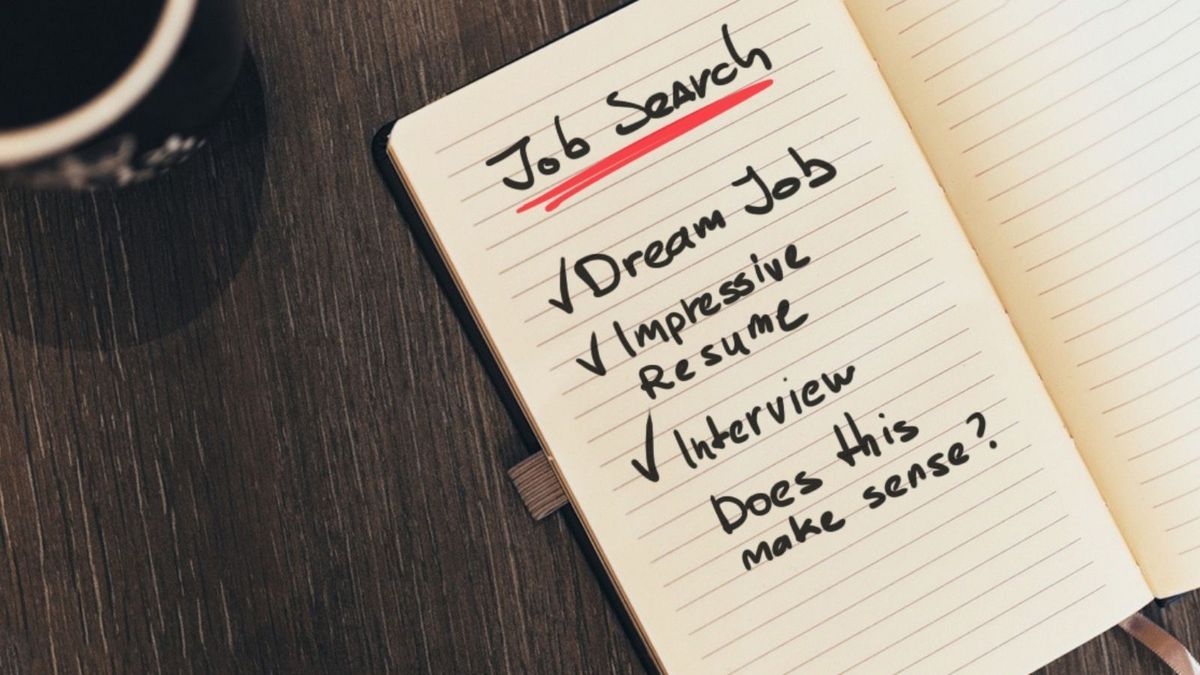 Job Search
✓ Dream Job
✓ Impressive
Resume
✓ Interview
Does this
make sense?